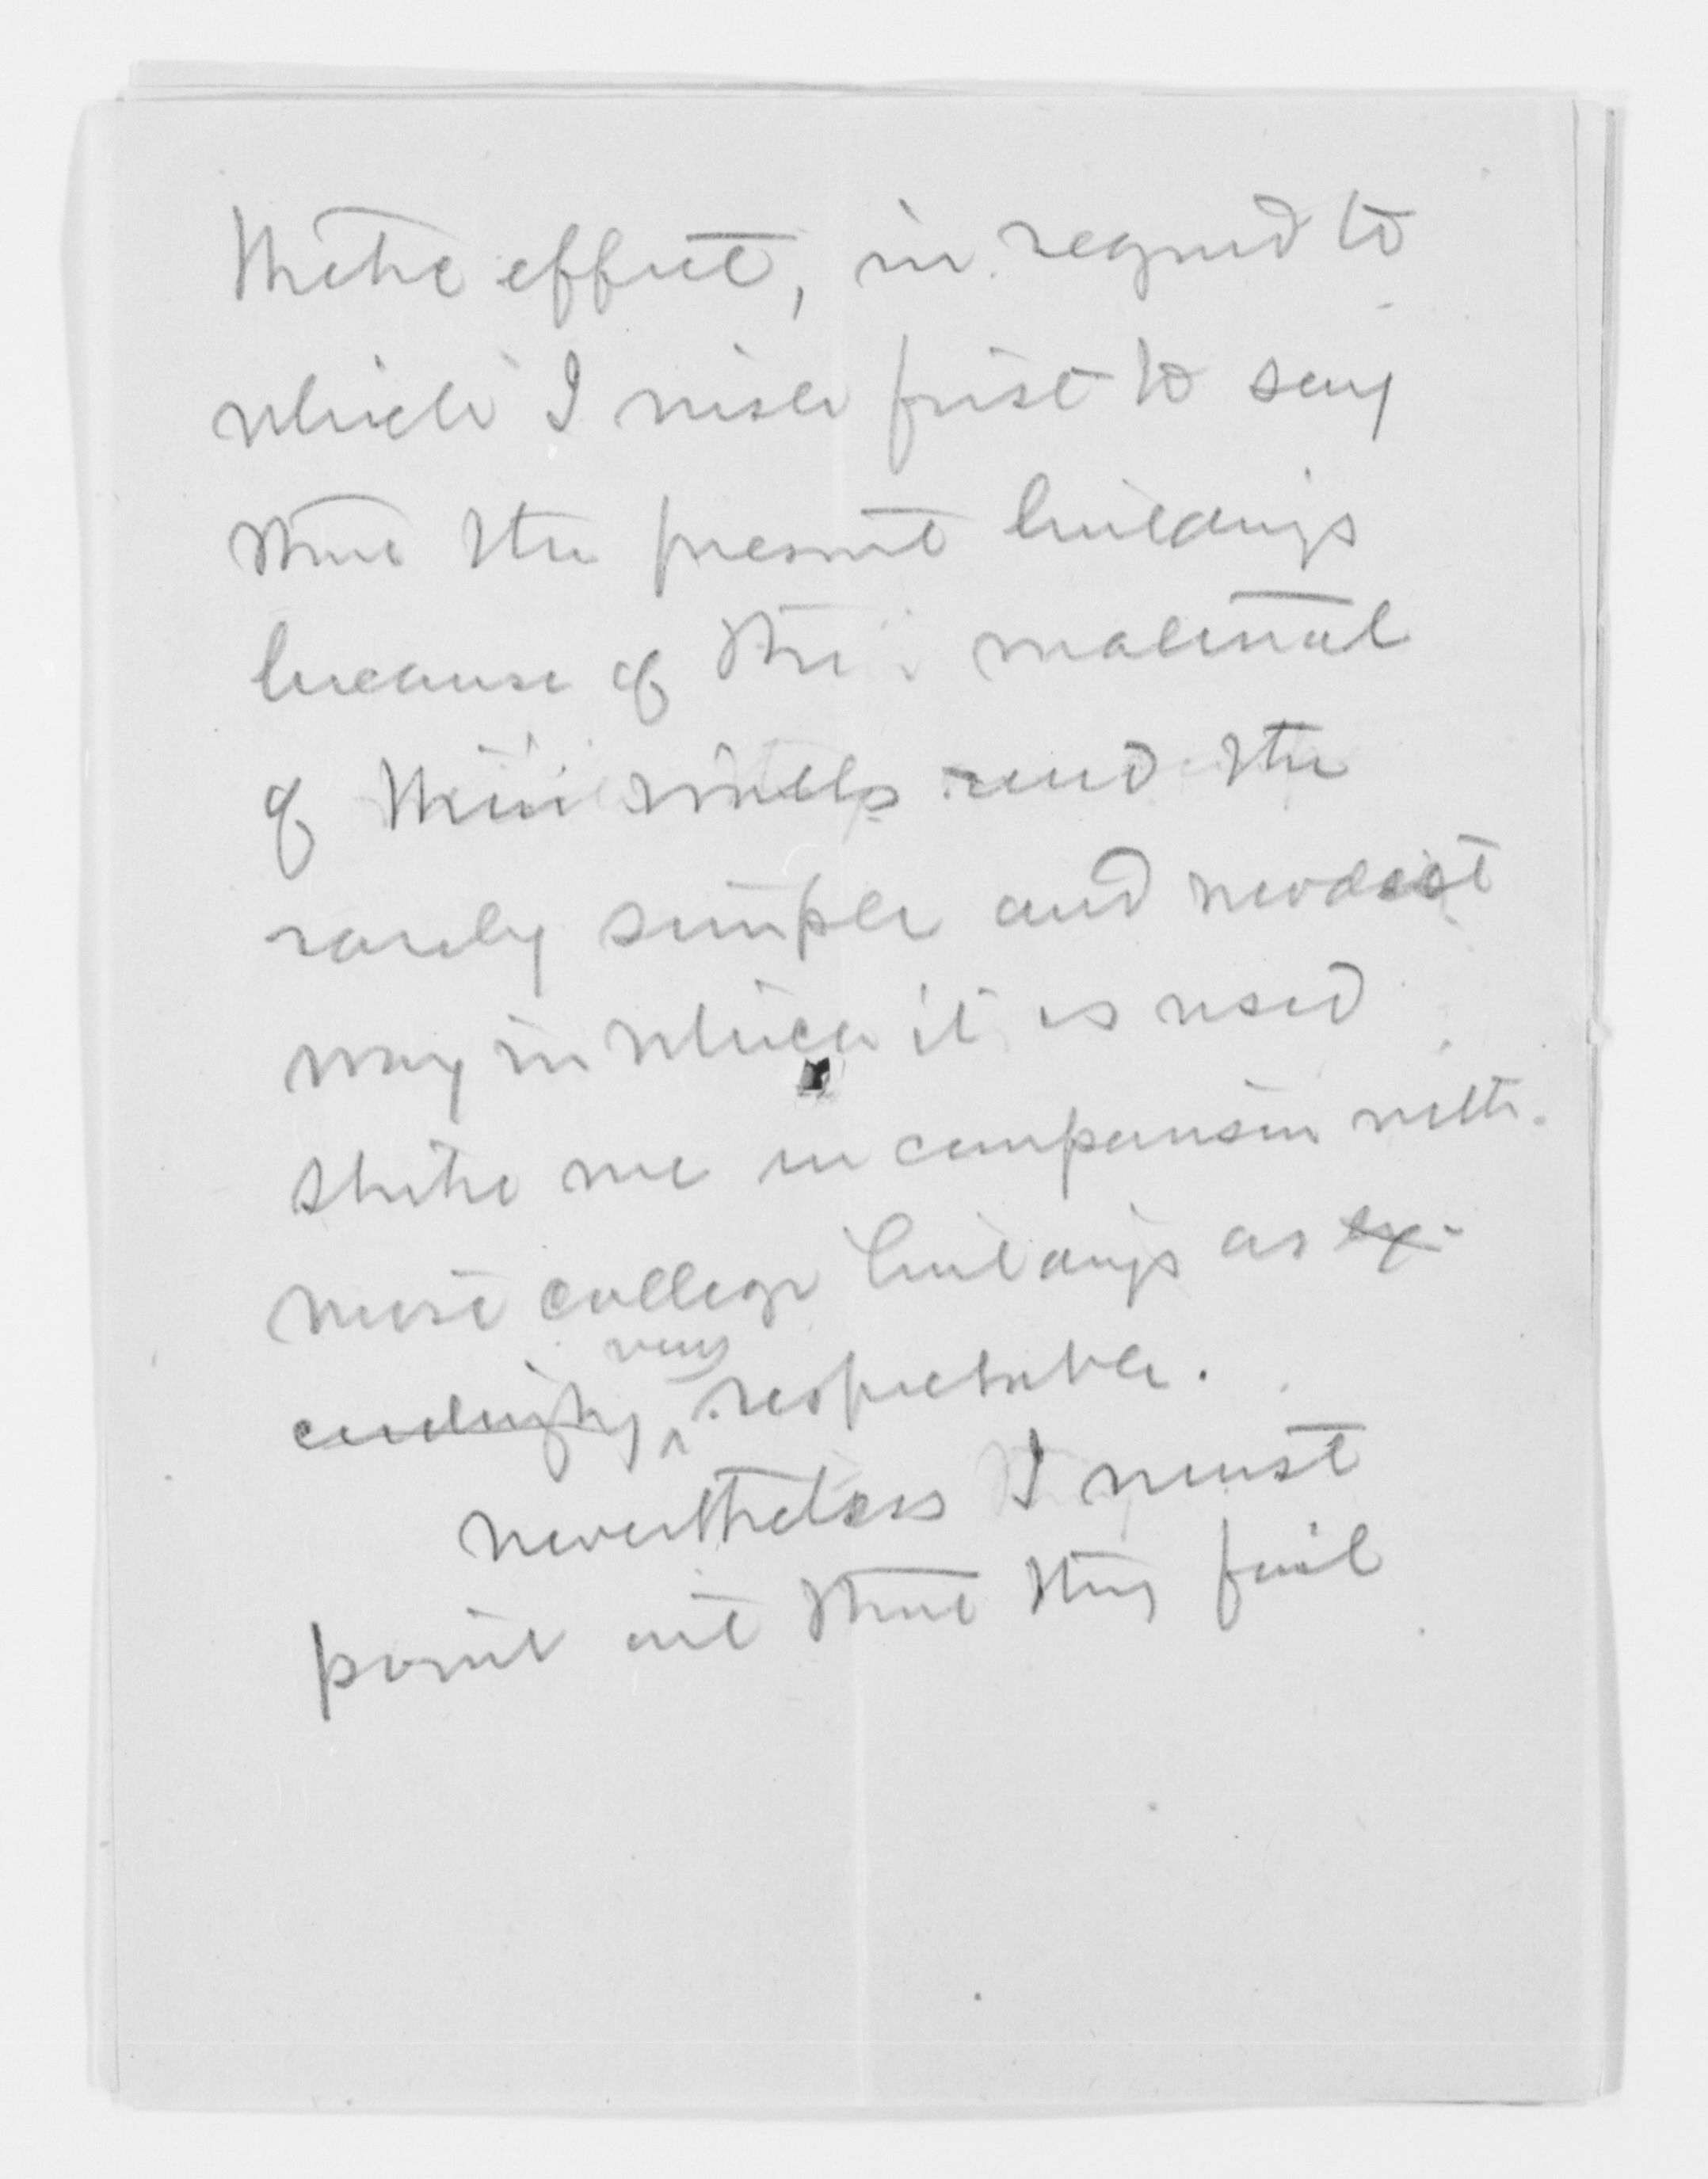 thetic effect, in regard to
which I wish first to say
that the present buildings
because of the material
of their walls and the
rarely simple and modest
way in which it is used
strike me in comparison with
most college buildings as ex-
ceedingly very respectable.
Nevertheless I must
point out that they fail